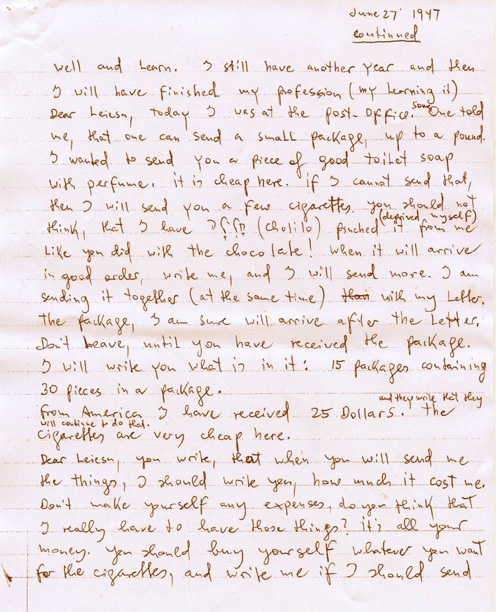 June 27 1947
continued
well and Learn. I still have another year and then
I will have finished my profession (my Learning it)
Dear Leiesn, today I was at the post-office. some One told
me, that one can send a small package, up to a pound.
I wanted to send you a piece of good toilot soap
with perfume. it is cheap here. if I cannot send that,
then I will send you a few cigarettes. you should not
think, that I have חלילה (cholilo) pinched (deprived myself) it from me
Like you did with the chocolate! when it will arrive
in good order, write me, and I will send more. I am
sending it together (at the same time) with my Letter.
The package, I am sure will arrive after the Letter.
Don't Leave, until you have received the package.
I will write you what is in it: 15 packages containing
30 pieces in a package.
From America I have received 25 Dollars. and they write that they will continue to do that. The
cigarettes are very cheap here.
Dear Leiesn, you write, that when you will send me
the things, I should write you, how much it cost me.
Don't make yourself any expenses, do you think that
I really have to have those things? it's all your
money. you should buy yourself whatever you want
for the cigarettes, and write me if I should send